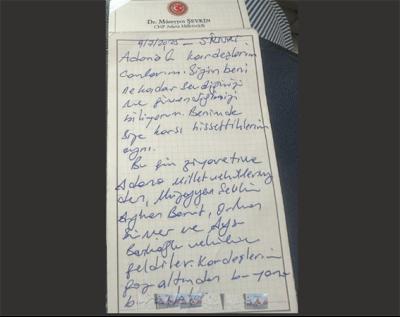 Dr. Müzeyyen ŞEVKİN
CHP Adana Milletvekili
9/7/2025 – SİLİVRİ
Adanalı kardeşlerim
canlarım. Sizin beni
ne kadar sevdiğinizi
ve güvendiğinizi
biliyorum. Benimde
size karşı hissettiklerim
aynı.
Bu gün ziyaretime
Adana Milletvekillerimiz
den, Müzeyyen Şevkin
Ayhan Barut, Orhan
Sümer ve Ayşe
geldiler. Kardeşlerim